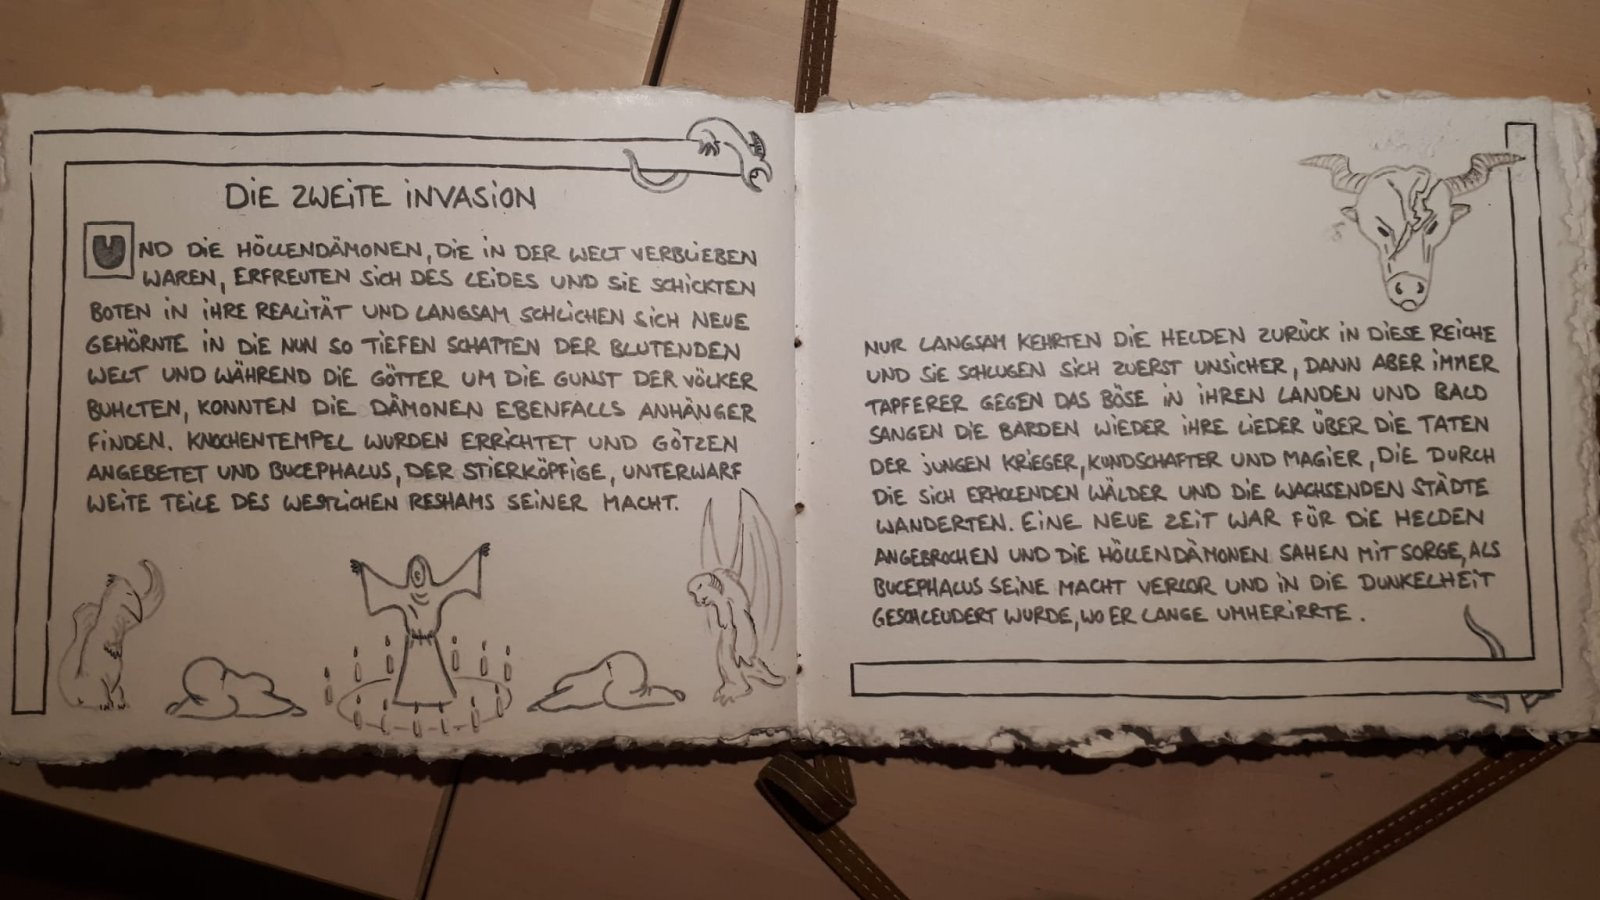 DIE ZWEITE INVASION
UND DIE HÖLLENDÄMONEN, DIE IN DER WELT VERBLIEBEN
WAREN, ERFREUTEN SICH DES LEIDES UND SIE SCHICKTEN
BOTEN IN IHRE REALITÄT UND LANGSAM SCHLICHEN SICH NEUE
GEHÖRNTE IN DIE NUN SO TIEFEN SCHATTEN DER BLUTENDEN
WELT UND WÄHREND DIE GÖTTER UM DIE GUNST DER VÖLKER
BUHLTEN, KONNTEN DIE DÄMONEN EBENFALLS ANHÄNGER
FINDEN. KNOCHENTEMPEL WURDEN ERRICHTET UND GÖTZEN
ANGEBETET UND BUCEPHALUS, DER STIERKÖPFIGE, UNTERWARF
WEITE TEILE DES WESTLICHEN RESHAMS SEINER MACHT.
NUR LANGSAM KEHRTEN DIE HELDEN ZURÜCK IN DIESE REICHE
UND SIE SCHLUGEN SICH ZUERST UNSICHER, DANN ABER IMMER
TAPFERER GEGEN DAS BÖSE IN IHREN LANDEN UND BALD
SANGEN DIE BARDEN WIEDER IHRE LIEDER ÜBER DIE TATEN
DER JUNGEN KRIEGER, KUNDSCHAFTER UND MAGIER, DIE DURCH
DIE SICH ERHOLENDEN WÄLDER UND DIE WACHSENDEN STÄDTE
WANDERTEN. EINE NEUE ZEIT WAR FÜR DIE HELDEN
ANGEBROCHEN UND DIE HÖLLENDÄMONEN SAHEN MIT SORGE, ALS
BUCEPHALUS SEINE MACHT VERLOR UND IN DIE DUNKELHEIT
GESCHLEUDERT WURDE, WO ER LANGE UMHERIRRTE.